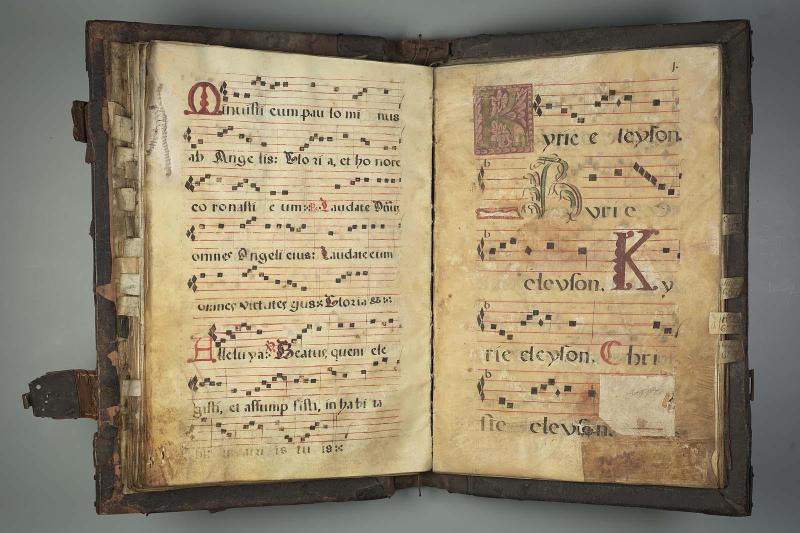 Minuisti eum pau lo mi nus
ab Ange lis: Glo ri a, et ho nore
co ronasti e um: Laudate Dñm
omnes Angeli eius: Laudate eum
omnes virtutes eius: Gloria
Alleluya: Beatus, quem ele
gisti, et assump sisti, in ha bi ta
1.
Kyrie e leyson.
Kyri e
eleyson. Ky
rie eleyson. Chri
ste eleyson.